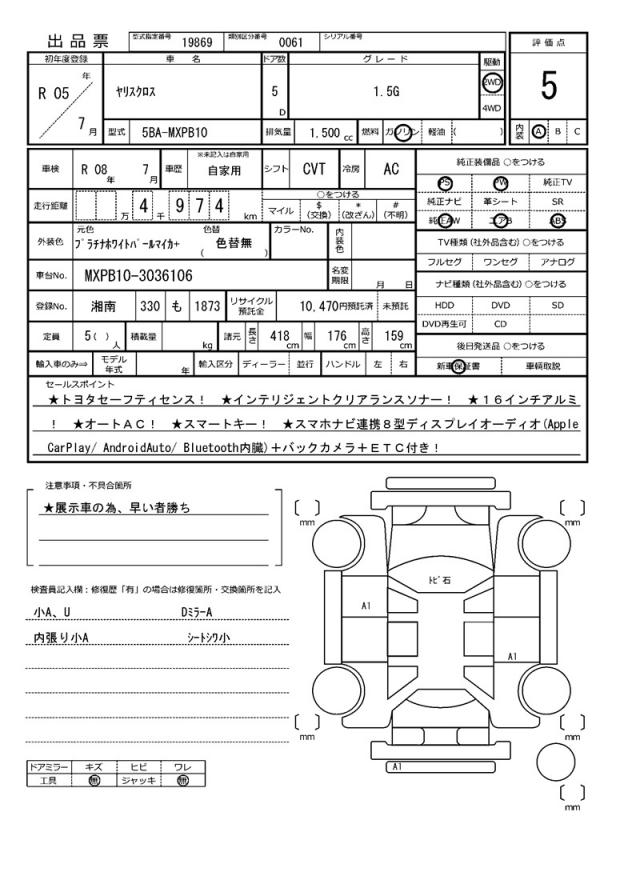 出品票 型式指定番号 19869 類別区分番号 0061 シリアル番号
評価点
5
内装 A B C
初年度登録 車名 ドア数 グレード 駆動
R 05 年 7 月 ヤリスクロス 5 D 1.5G 2WD 4WD
型式 5BA-MXPB10 排気量 1.500 cc 燃料 ガソリン 軽油 ( )
車検 R 08 年 7 月 車歴 ※未記入は自家用 自家用 シフト CVT 冷房 AC
走行距離 万 4 千 9 7 4 km ○をつける マイル $(交換) *(改ざん) #(不明)
外装色 元色 プラチナホワイトパールマイカ+ 色替 ( 色替無 ) カラーNo. 内装色
車台No. MXPB10-3036106 名変期限 月 日
登録No. 湘南 330 も 1873 リサイクル預託金 10,470円預託済 未預託
定員 5( ) 人 積載量 kg 諸元 長さ 418 cm 幅 176 cm 高さ 159 cm
輸入車のみ⇒ モデル年式 年 輸入区分 ディーラー 並行 ハンドル 左 右
純正装備品 ○をつける
PS PW 純正TV
純正ナビ 革シート SR
純正AW エアB ABS
TV種類 (社外品含む) ○をつける
フルセグ ワンセグ アナログ
ナビ種類 (社外品含む) ○をつける
HDD DVD SD
DVD再生可 CD
後日発送品 ○をつける
新車保証書 車輌取説
セールスポイント
★トヨタセーフティセンス! ★インテリジェントクリアランスソナー! ★16インチアルミ
! ★オートAC! ★スマートキー! ★スマホナビ連携8型ディスプレイオーディオ(Apple
CarPlay/ AndroidAuto/ Bluetooth内臓)+バックカメラ+ETC付き!
注意事項・不具合箇所
★展示車の為、早い者勝ち
検査員記入欄:修復歴「有」の場合は修復箇所・交換箇所を記入
小A、U DミラーA
内張り小A シートシワ小
ドアミラー キズ ヒビ ワレ
工具 無 ジャッキ 無
[ ] mm [ ] mm
トビ石
A1
A1
[ ] mm [ ] mm
A1
[ ] mm